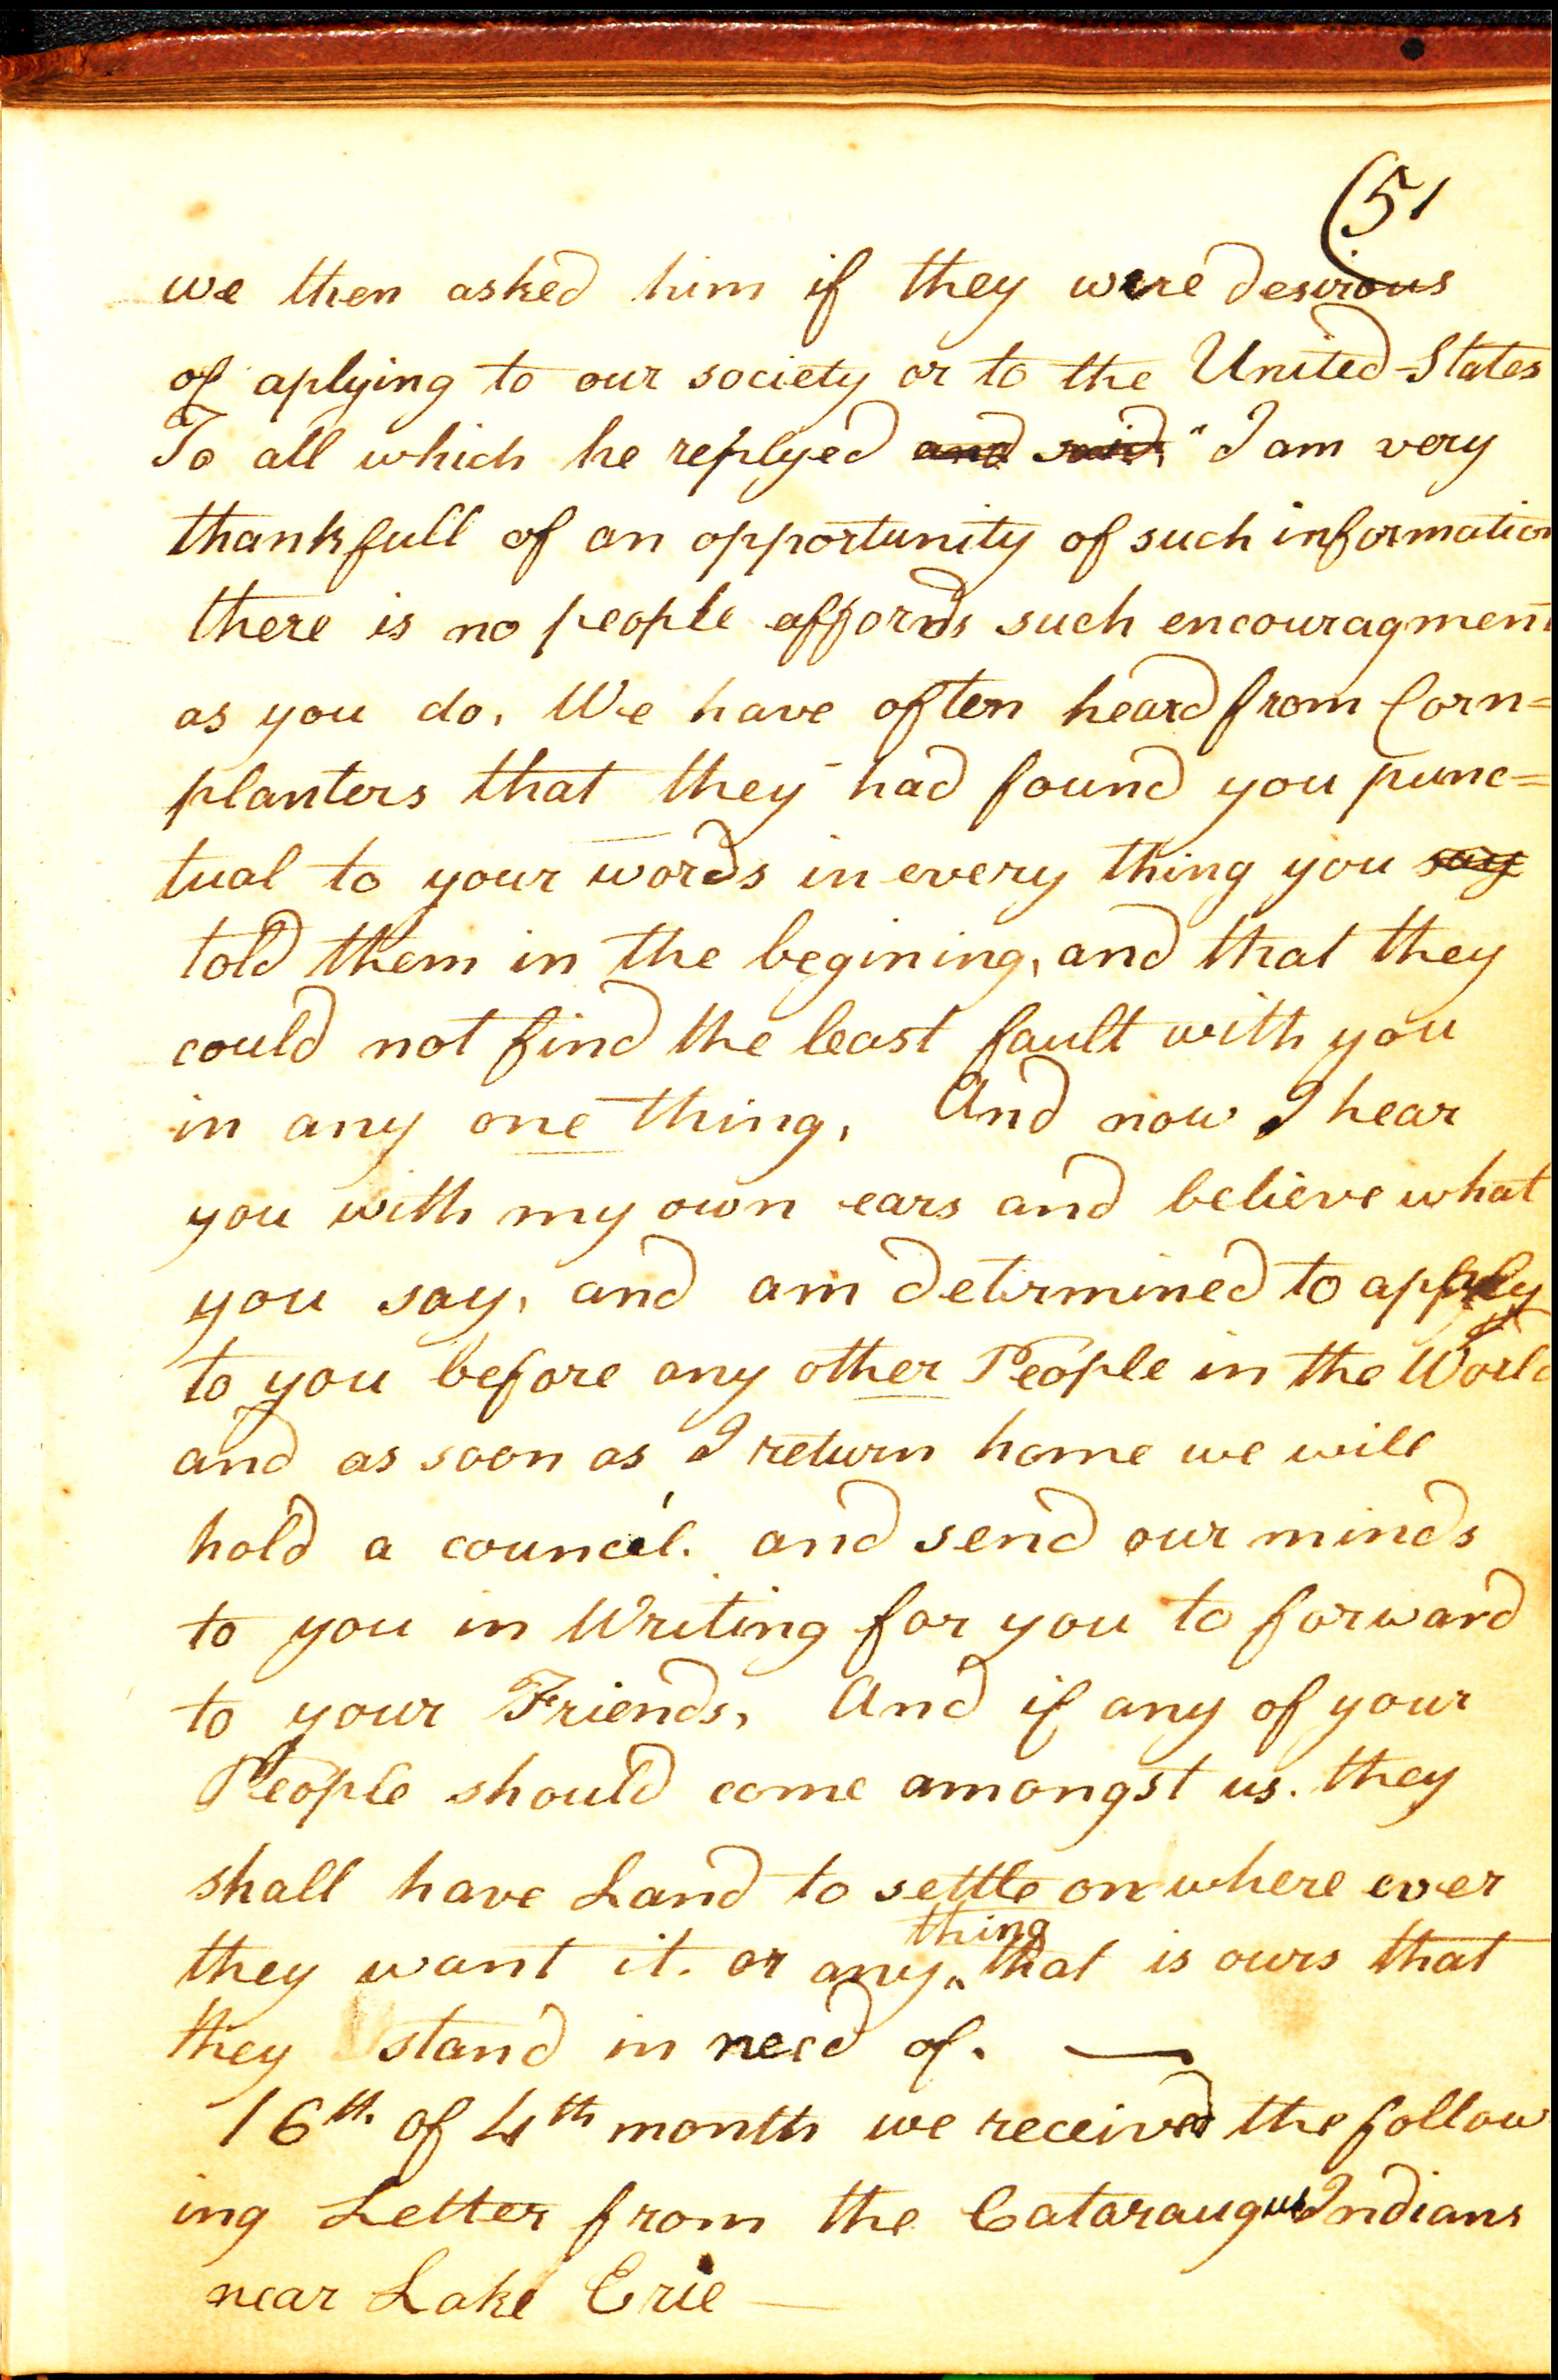 (51
we then asked him if they were desirous
of aplying to our society or to the United States
To all which he replyed and said, "I am very
thankfull of an opportunity of such information
there is no people affords such encouragment
as you do. We have often heard from Corn=
planters that they had found you punc=
tual to your words in every thing you say
told them in the begining, and that they
could not find the least fault with you
in any one thing, And now I hear
you with my own ears and believe what
you say, and am determined to apply
to you before any other People in the World
and as soon as I return home we will
hold a council. and send our minds
to you in Writing for you to forward
to your Friends, And if any of your
People should come amongst us. they
shall have Land to settle on where ever
thing
they want it. or any ‸ that is ours that
they stand in need of. —
16th. of 4th month we received the follow
ing Letter from the Cataraugus Indians
near Lake Erie —